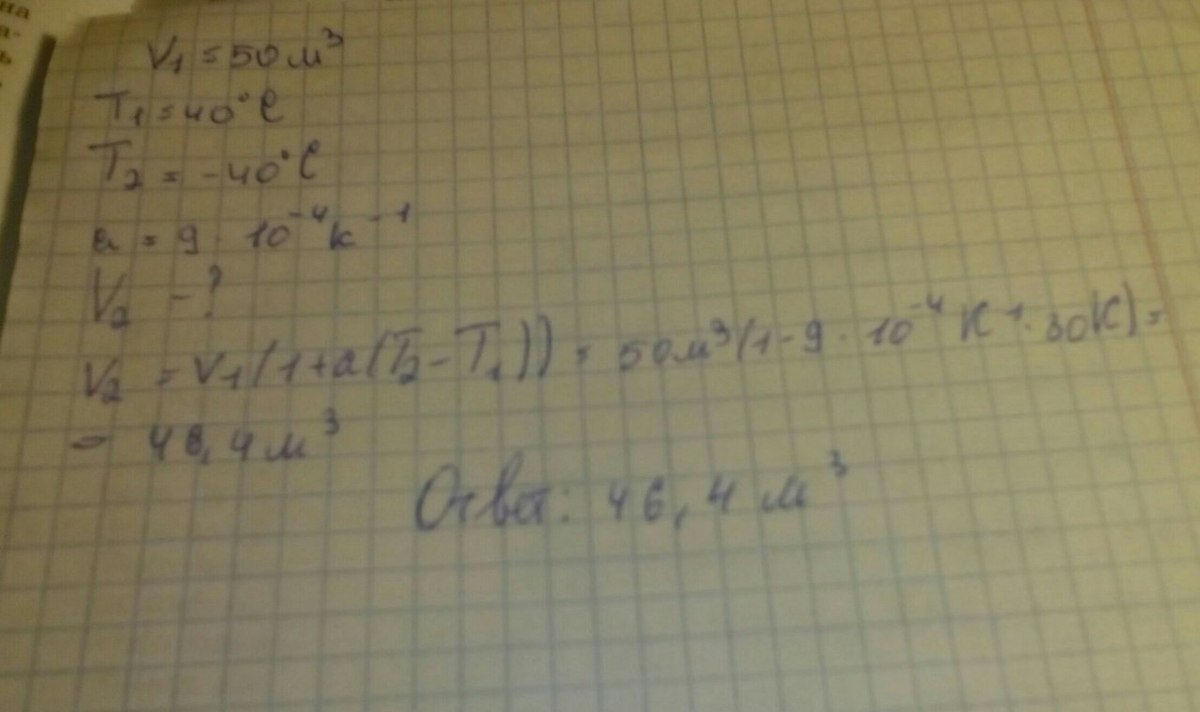 на
а-
ь
V₁ = 50 м³
T₁ = 40°C
T₂ = -40°C
a = 9 · 10⁻⁴ K⁻¹
V₂ - ?
V₂ = V₁(1+a(T₂-T₁)) = 50 м³(1-9 · 10⁻⁴ K⁻¹ · 80K) =
= 46,4 м³
Ответ: 46,4 м³